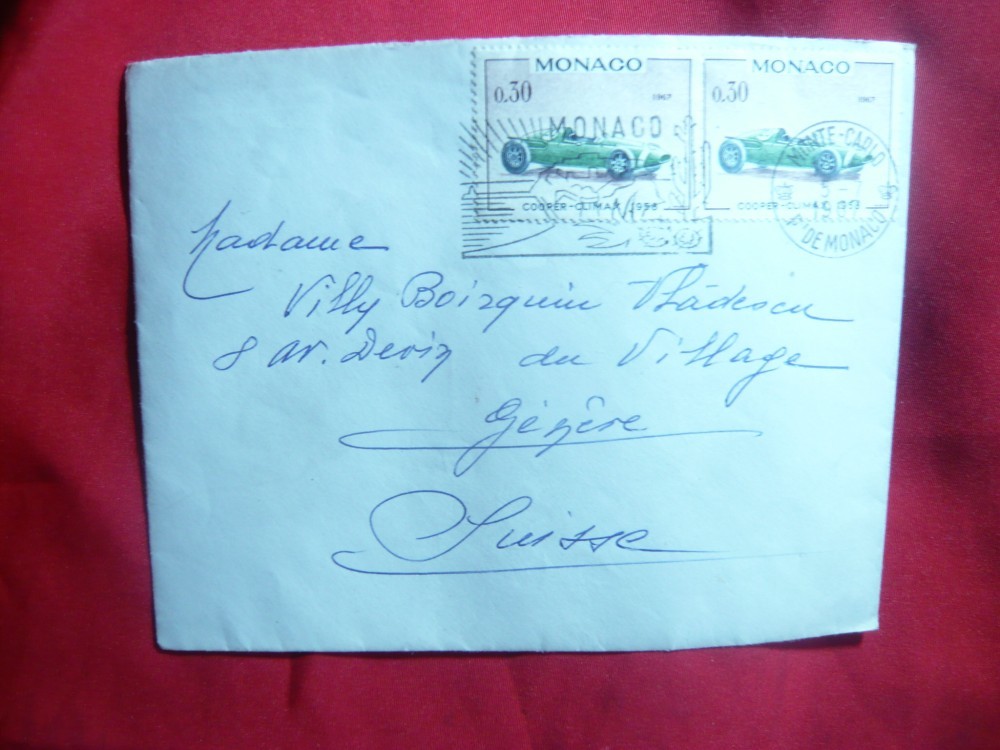 MONACO
0,30
1967
COOPER-CLIMAX 1958
MONACO
0,30
1967
COOPER-CLIMAX 1958
MONACO
MONTE-CARLO
Pté DE MONACO
Madame
Villy Boizquin Vlădescu
8 av. Devin du Village
Génève
Suisse